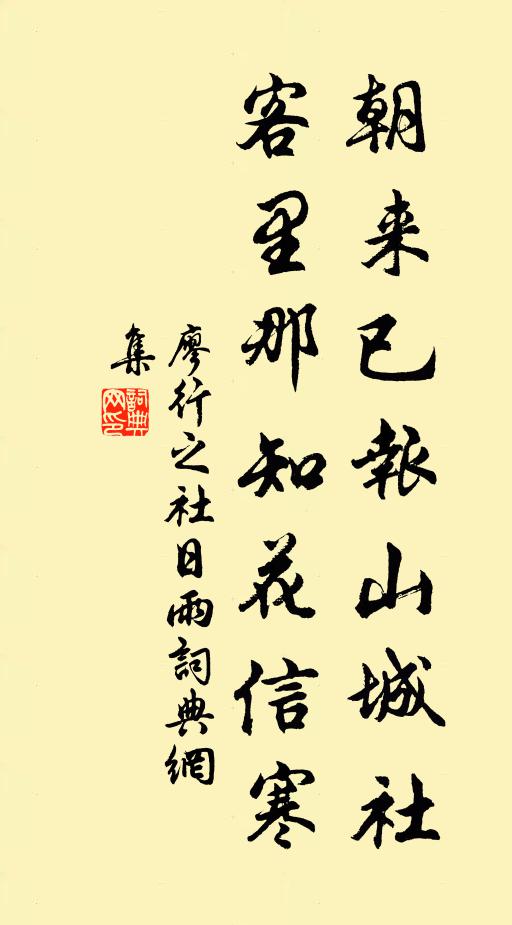 朝来已報山城社
客里那知花信寒
廖行之社日雨詞典網
集
詞典
网印